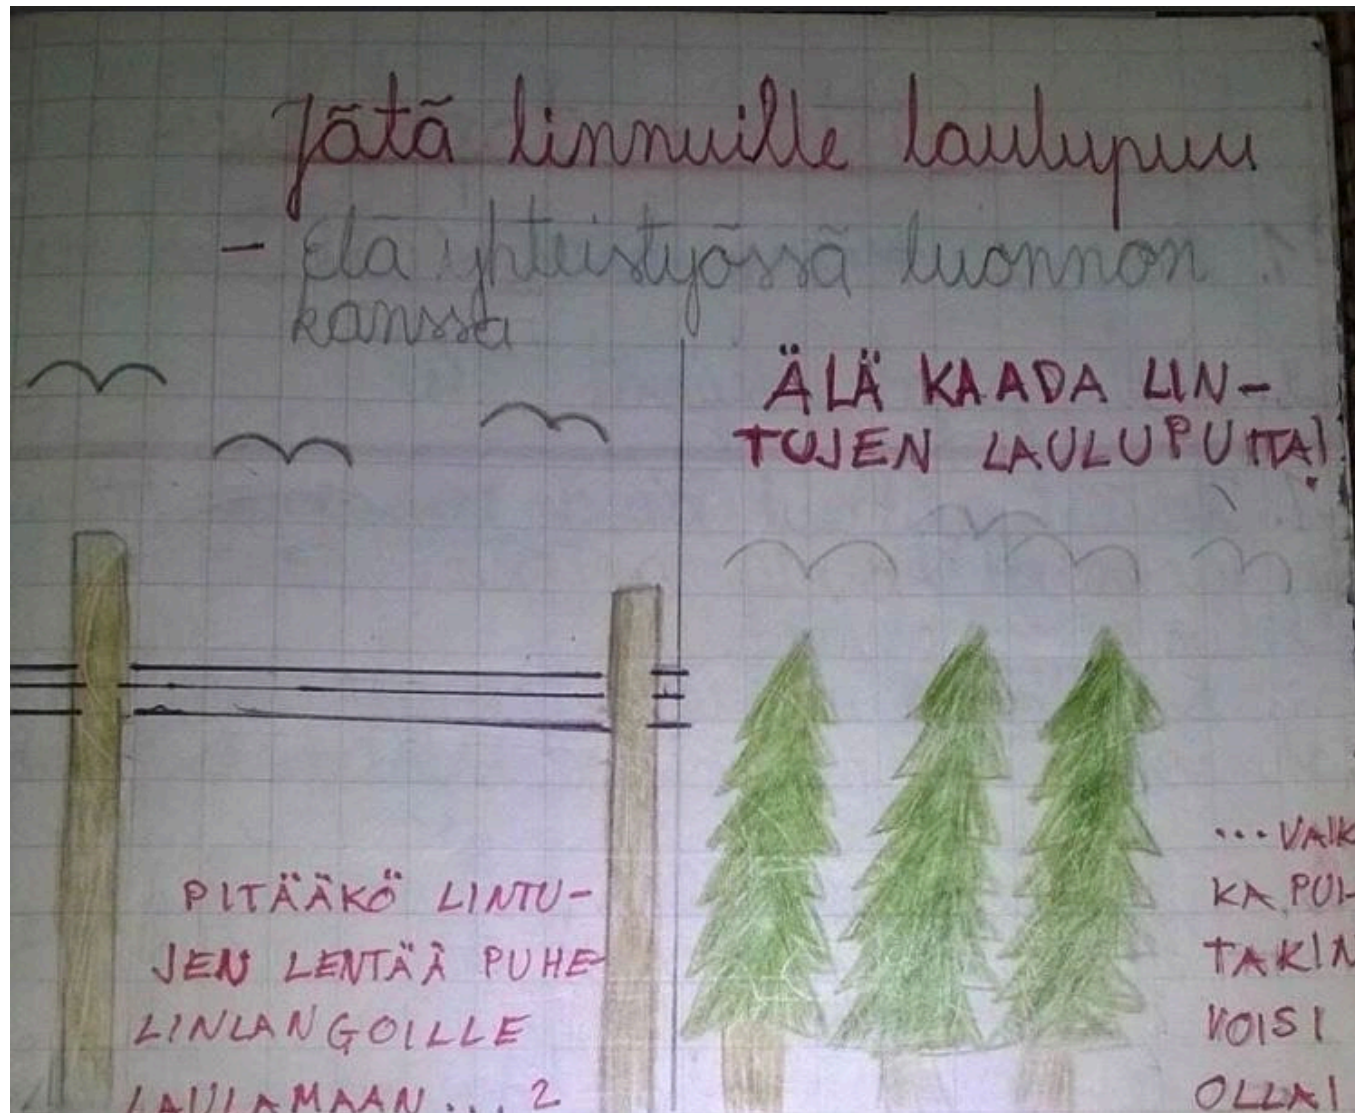 Jätä linnuille laulupuu
- Elä yhteistyössä luonnon
kanssa
ÄLÄ KAADA LIN-
TUJEN LAULUPUITA!
PITÄÄKÖ LINTU-
JEN LENTÄÄ PUHE-
LINLANGOILLE
LAULAMAAN... 2
...VAIK
KA PUI-
TAKIN
VOISI
OLLA!